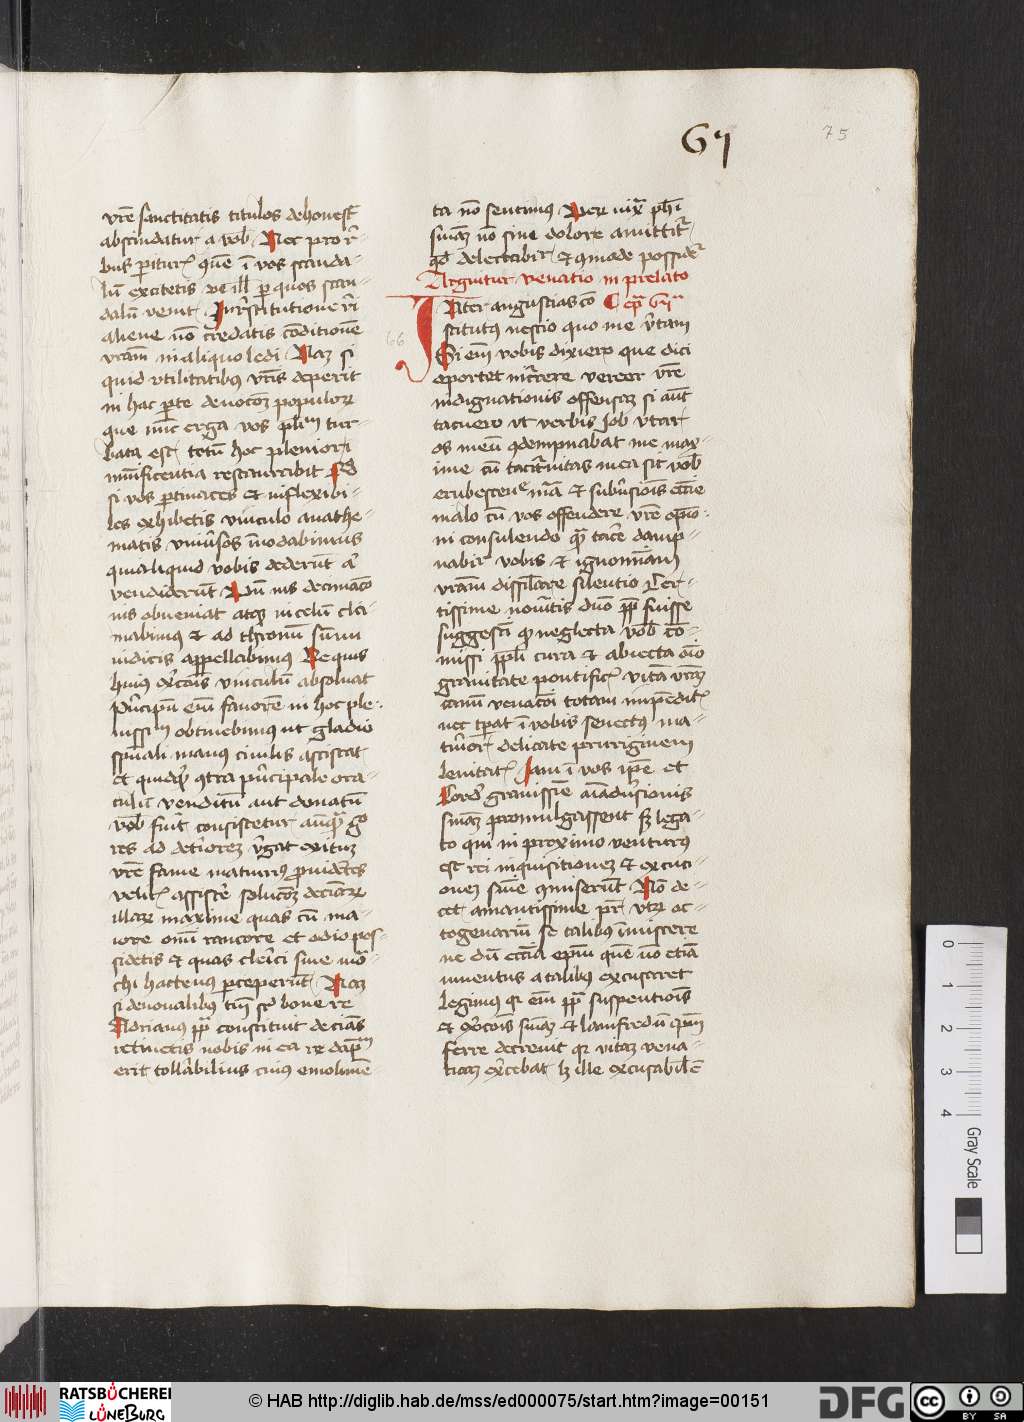 67
75
vr̄e sanctitatis titulos dehonest̄
abscindatur a vob̄ . Nec pro r̄-
bus p̄itur quē ī vos scanda-
lū excitetis ve ill̄ p̄ quos scan-
dalū venit . In r̄stitutione r̄i
aliene nō credatis cōditionē
vrām in aliquo ledi . Naʒ si
quid vtilitatibus vr̄is deperit
in hac p̄te deuotoʒ populorʒ
que nūc erga vos pl̄im tur-
bata est totū hoc pleniori
munificentia restaurabit Sʒ
si vos p̄tinaces et inflexibi-
les exhibetis vinculo anathe-
matis vniūsos īnodabimus
qui aliquid vobis dederūt aʳ
vendiderūt . Dū ius decimaco
nis obueniat atqʒ in celū cla-
mabimus et ad thronū sūmi
iudicis appellabimus Ne quis
huiꝰ ex̄cōis vinculū absoluat
p̄ncipū enī fauorē in hoc ple-
nissim obtinebimus ut gladio
spūali manus ciuilis assistat
et quidqʒ 9tra p̄ncipale ora-
culū venditū aut donatū
vob̄ fuīt consistetur aūqʒ go
res ad detiorem v̄gat exituʒ
vr̄e fame maturius prouidētes
velit assistē̄ solucōʒ deciarʒ
illarʒ maxime quas cū ma-
iore onū rancore et odio pos-
sidetis et quas cleīci siue mō-
chi hactenus p̄ceperūt . Naʒ
si de noualibus tm̄ sʒ bone re
Adrianus pp̄ constituit decīas
retinetis nobis in ea re dāpm̄
erit tollābilius cuiꝰ emolumē-
ta nō sentimus . Per iux̄ ph̄i
sūmaʒ nō sine dolore amittitʳ
qd̄ delectabiʳ et 9mode possideʳ
Arguitur venatio in prelato
Inter angustias cō C cp̄ 67m
66
stitutus nescio quo me v̄tam
Si em̄ vobis dixero que dici
oportet incr̄ere vereor vr̄e
indignationis offensaʒ si aūt
tacuero vt verbis Job vtar
os meū 9dempnabat me max-
ime cū taciʳnitas mea sit vob̄
erubescenᵉ mā et subūsiois eccīe
malo cū vos offendere vr̄e opio-
ni consulendo qʒ tacē dāmp-
nabiʳ vobis et ignomīam
vrām dissilare silentio Cer-
tissime nouītis duō pp̄ fuisse
suggesti qʒ neglecta vob̄ cō-
missi pp̄li cura et abiecta oīo
grauitate pontific vitā vrāʒ
canū venacōi totam impendit
nec tp̄at ī vobis senectus ma-
tūior delicate pruriginem
lenitat . Iam ī vos ip̄e et
Cord grauissīe aīaduīsionis
sūmaʒ promulgassent sʒ lega-
to qui in proximo venturus
est rei inquisitioneʒ et execuci-
oneʒ sane 9miserūt Nō de-
cet amantissime pr̄ vtrʒ oc-
togenariū se talibus īmiscere
ne dū ecciā epm̄ quē nō etiā
iuuentus a talibus excusaret
Legimus qr em̄ pp̄ suspensionis
et ex̄cōis sūmaʒ et lanfredū ep̄m
ferre decreuit qr vitaʒ vena-
ticaʒ ex̄cebat lʒ ille excusabilē
0 1 2 3 4
Gray Scale
RATSBÜCHEREI
LÜNEBURG
© HAB http://diglib.hab.de/mss/ed000075/start.htm?image=00151
DFG
cc
BY SA